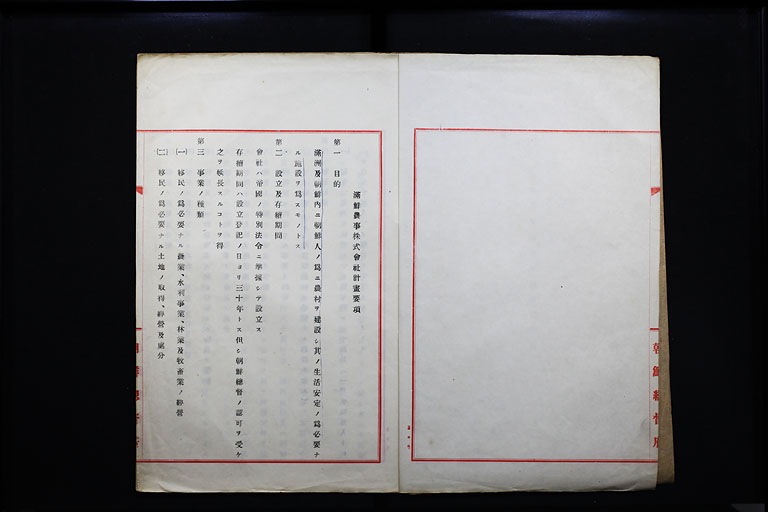 滿鮮農事株式會社計畫要項
第一 目的
滿洲及朝鮮內ニ朝鮮人ノ爲ニ農村ヲ建設シ其ノ生活安定ノ爲必要ナ
ル施設ヲ爲スモノトス
第二 設立及存續期間
會社ハ帝國ノ特別法令ニ準據シテ設立ス
存續期間ハ設立登記ノ日ヨリ三十年トス但シ朝鮮總督ノ認可ヲ受ケ
之ヲ帳長スルコトヲ得
第三 事業ノ種類
(一) 移民ノ爲必要ナル農業、水利事業、林業及牧畜業ノ經營
(二) 移民ノ爲必要ナル土地ノ取得、經營及處分
朝鮮總督府